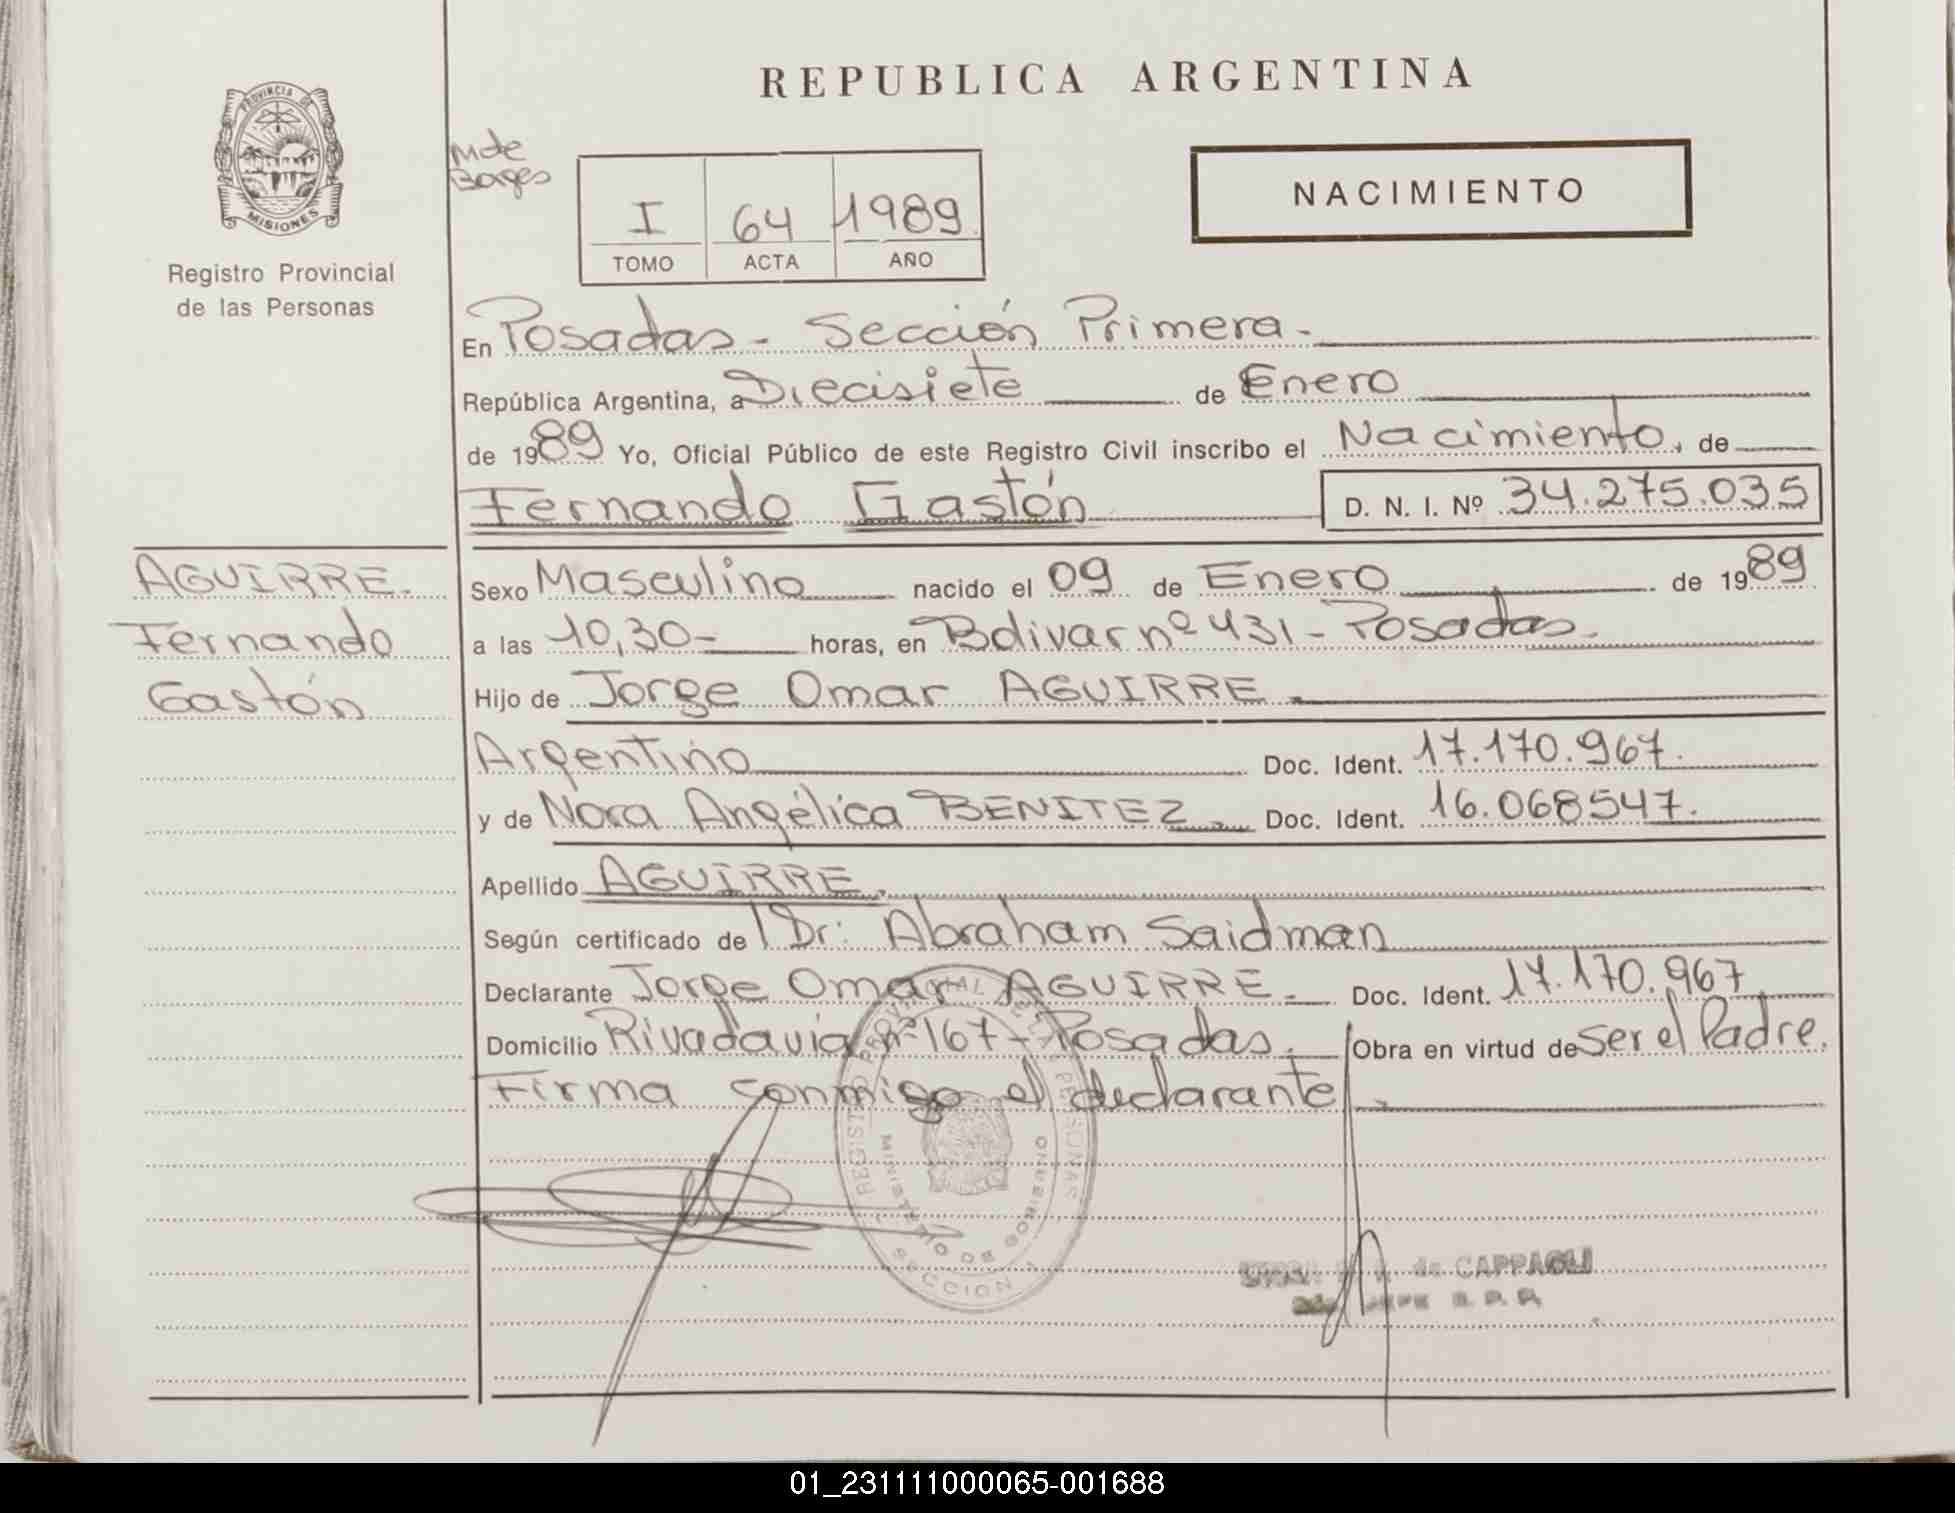 REPUBLICA ARGENTINA
PROVINCIA DE
MISIONES
Registro Provincial
de las Personas
M de
Borges
I 64 1989
TOMO ACTA AÑO
NACIMIENTO
En Posadas - Sección Primera -
República Argentina, a Diecisiete de Enero
de 1989 Yo, Oficial Público de este Registro Civil inscribo el Nacimiento, de
Fernando Gastón D. N. I. Nº 34.275.035
AGUIRRE.
Fernando
Gastón
Sexo Masculino nacido el 09 de Enero de 1989
a las 10,30- horas, en Bolivar nº 431 - Posadas.
Hijo de Jorge Omar AGUIRRE
Argentino Doc. Ident. 17.170.967.
y de Nora Angélica BENITEZ. Doc. Ident. 16.068547.
Apellido AGUIRRE.
Según certificado de Dr: Abraham Saidman
Declarante Jorge Omar AGUIRRE. Doc. Ident. 17.170.967
Domicilio Rivadavia nº 167 - Posadas. Obra en virtud de Ser el Padre.
Firma conmigo el declarante
REGISTRO PROVINCIAL DE LAS PERSONAS
MINISTERIO DE GOBIERNO
SECCION 1
de CAPPAGLI
JEFE
01_231111000065-001688